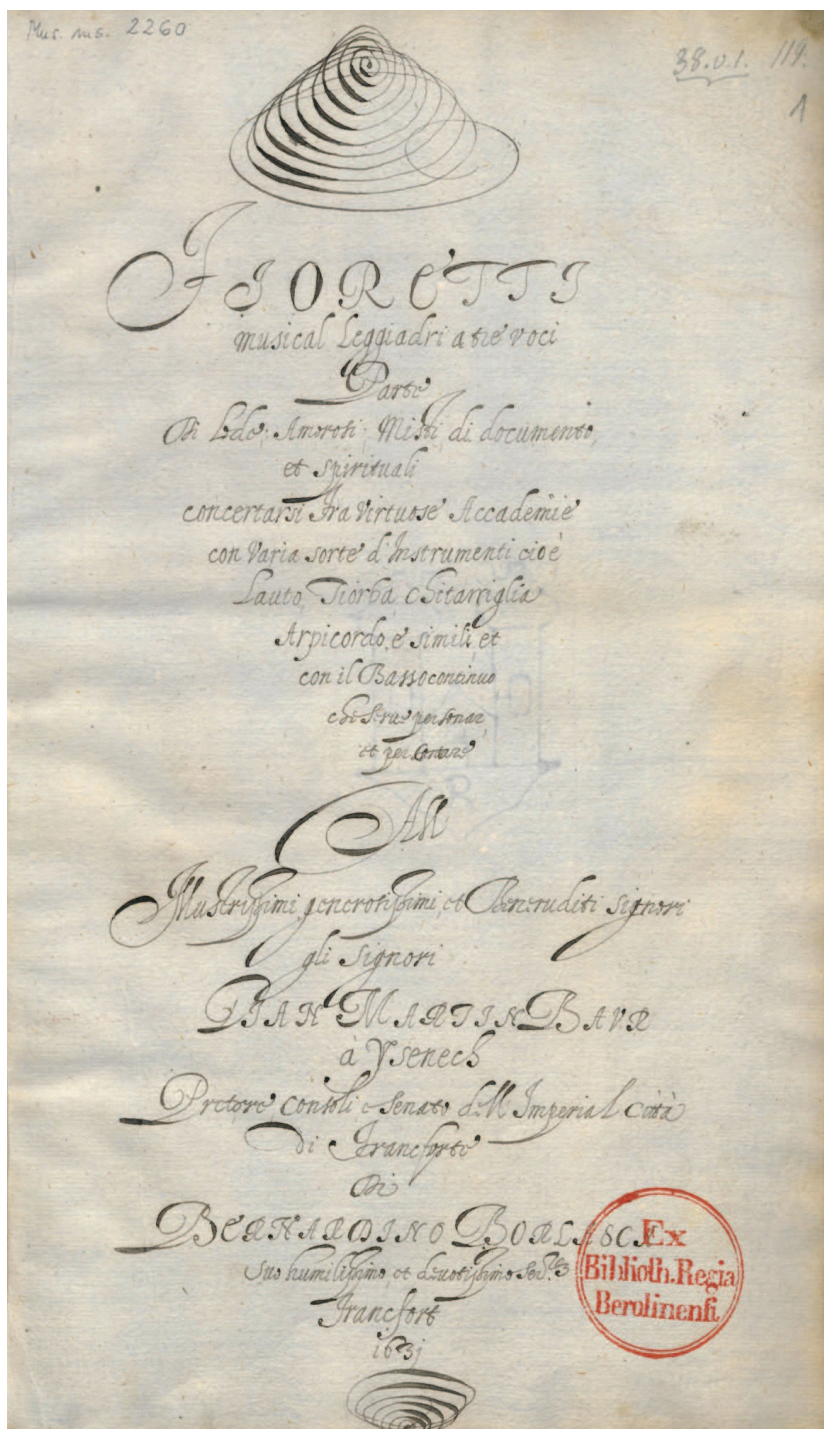 Mus. ms. 2260
38.v.1. 119.
1
FIORETTI
musical Leggiadri a tre voci
Parte
Di Lode, Amorosi, Misti, di documento,
et spirituali
concertarsi fra virtuose Accademie
con varia sorte d'Instrumenti cioè
Lauto, Tiorba, Chitarriglia
Arpicordo, e simili, et
con il Basso continuo
che serve per sonar,
et per
All
Illustrissimi, generosissimi, et Beneruditi signori
gli signori
GIAN MARTIN BAVR
à Ysenech
Pretore Consoli e Senato dell Imperial Città
di Francforte
Di
BERNARDINO BORLASCA
suo humilissimo, et devotissimo
Francfort
1631
Ex
Biblioth. Regia
Berolinensi